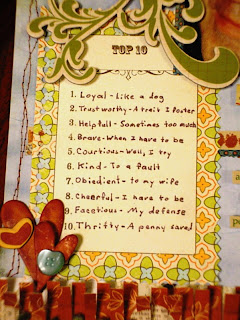 TOP 10
1. Loyal - Like a dog
2. Trustworthy - A trait I foster
3. Helpfull - Sometimes too much
4. Brave - When I have to be
5. Courtious - Well, I try
6. Kind - To a fault
7. Obiedient - to my wife
8. Cheerful - I have to be
9. Facetious - My defense
10. Thrifty - A penny saved